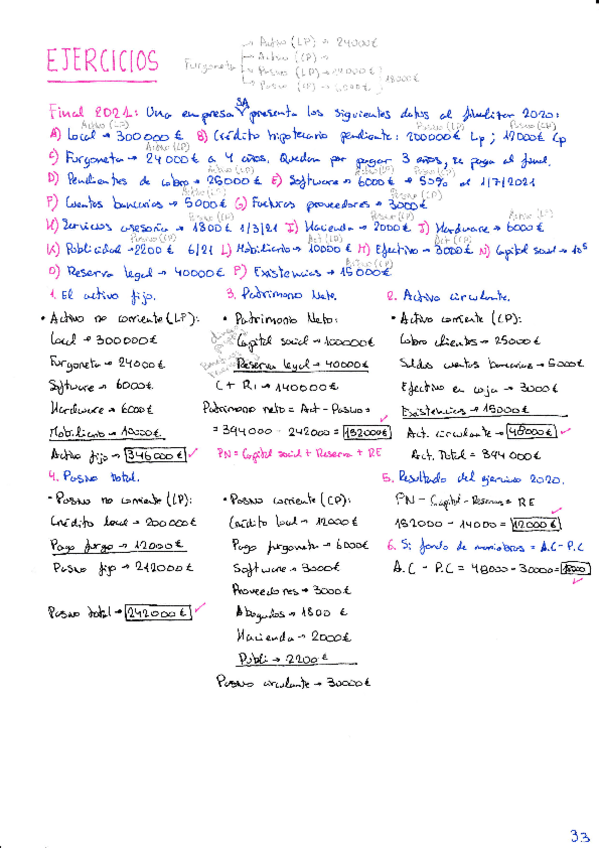 Activo (LP) → 24000€
EJERCICIOS
Furgoneta
Activo (CP) →
Pasivo (LP) → 12000€
18000€
Pasivo (CP) → 6000€
Final 2021: Una empresa SA presenta los siguientes datos al finalizar 2020:
A) Local → 300000€ B) Crédito hipotecario pendiente: 200000€ Lp; 12000€ Cp
C) Furgoneta → 24000€ a 4 años. Quedan por pagar 3 años, se paga al final.
D) Pendientes de cobro → 25000€ E) Software → 6000€ → 50% al 1/7/2021
F) Cuentas bancarias → 5000€ G) Facturas proveedores → 3000€
H) Servicios asesoría → 1800€ 1/3/21 I) Hacienda → 2000€ J) Hardware → 6000€
K) Publicidad → 2200€ 6/21 L) Mobiliario → 10000€ M) Efectivo → 3000€ N) Capital social → 10⁵
O) Reserva legal → 40000€ P) Existencias → 15000€
1. El activo fijo.
3. Patrimonio Neto.
2. Activo circulante.
• Activo no corriente (LP):
Local → 300000€
Furgoneta → 24000€
Software → 6000€.
Hardware → 6000€
Mobiliario → 10000€.
Activo fijo → 346000€
• Patrimonio Neto:
Capital social → 100000€
Reserva legal → 40000€
C + R1 → 140000€
Patrimonio neto = Act - Pasivo =
= 394000 - 242000 = 152000€
PN = Capital social + Reserva + RE
• Activo corriente (CP):
Cobro clientes → 25000€
Saldos cuentas bancarias → 5000€
Efectivo en caja → 3000€
Existencias → 15000€
Act. circulante → 48000€
Act. Total = 394000€
4. Pasivo total.
5. Resultado del ejercicio 2020.
• Pasivo no corriente (LP):
Crédito local → 200000€
Pago furgo → 12000€
Pasivo fijo → 212000€
Pasivo total → 242000€
• Pasivo corriente (CP):
Crédito local → 12000€
Pago furgoneta → 6000€
Software → 3000€
Proveedores → 3000€
Abogados → 1800€
Hacienda → 2000€
Publi → 2200€
Pasivo circulante → 30000€
PN - Capital - Reservas = RE
152000 - 14000 = 12000€
6. Si fondo de maniobras = A.C - P.C
A.C - P.C = 48000 - 30000 = 18000
33